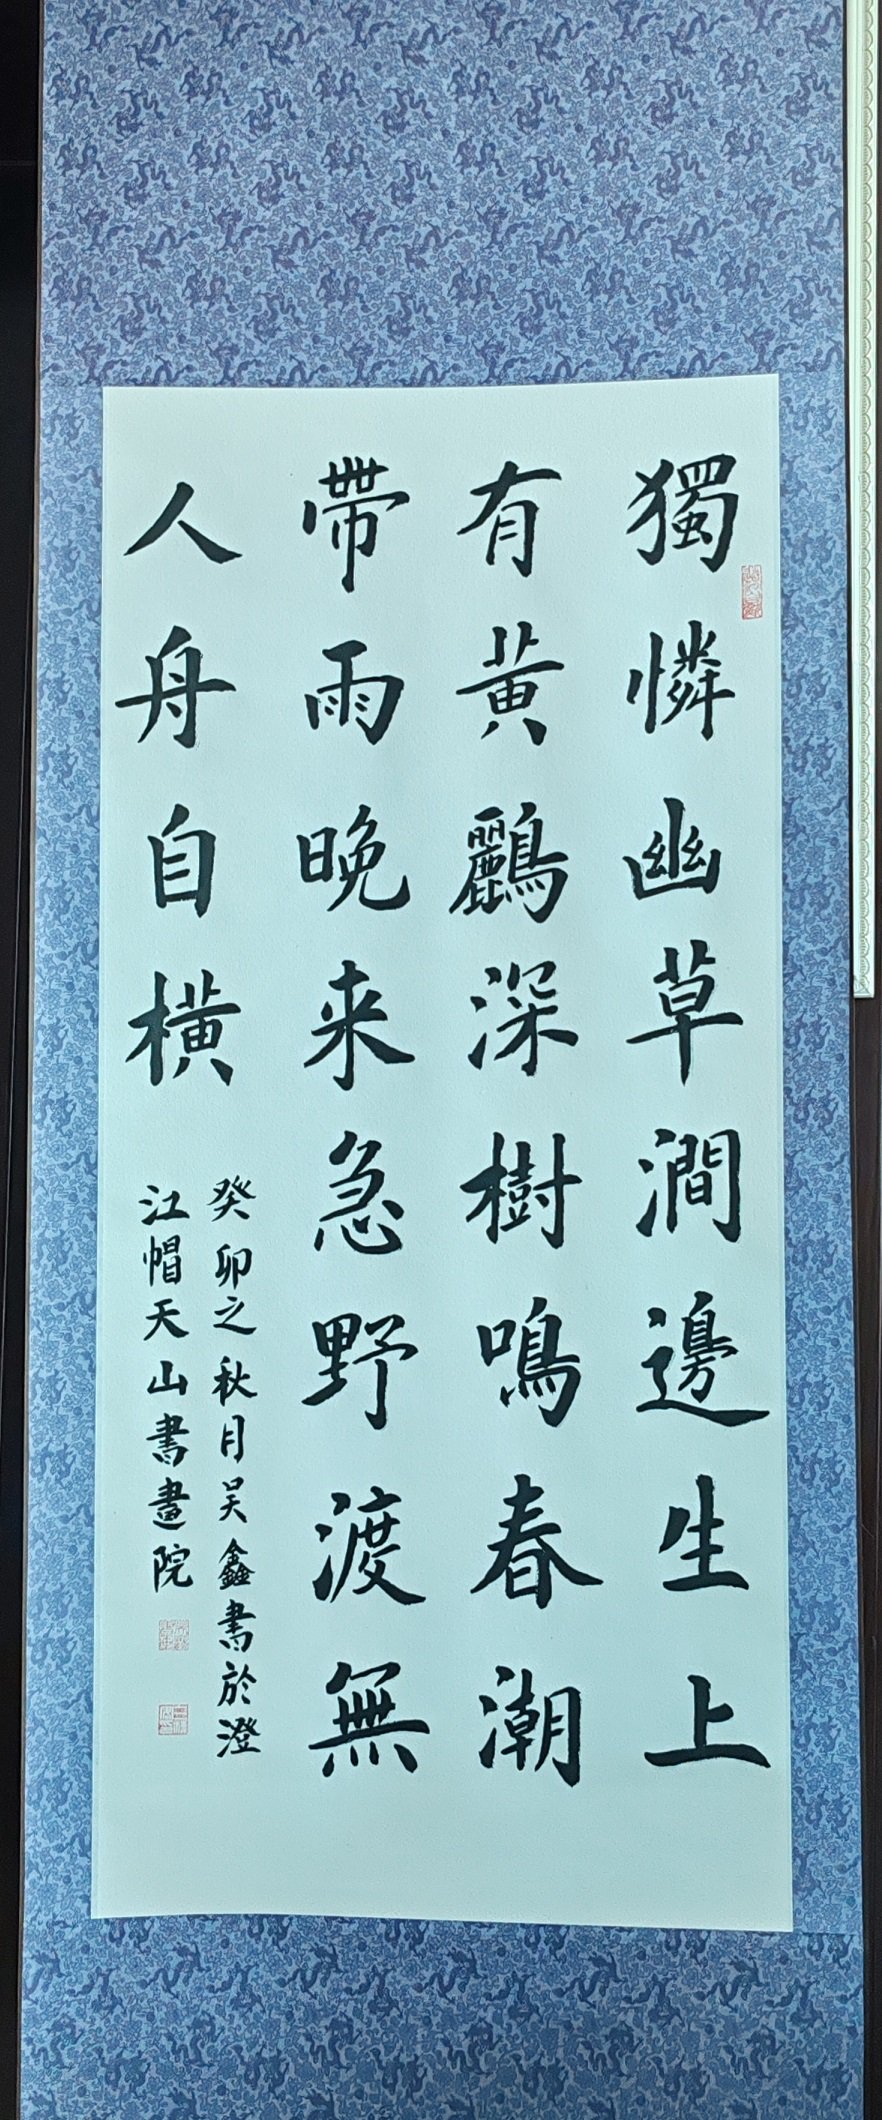 獨憐幽草澗邊生上
有黃鸝深樹鳴春潮
帶雨晚来急野渡無
人舟自横
癸卯之秋月吴鑫書於澄
江帽天山書畫院